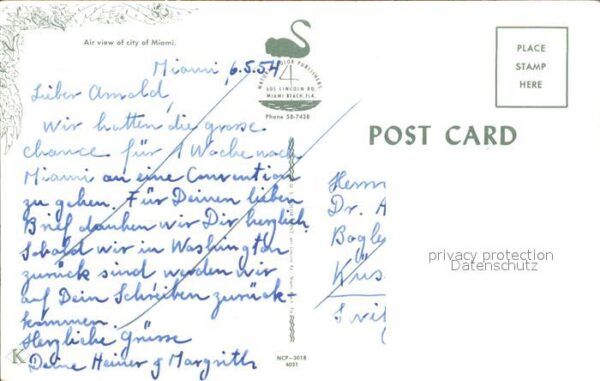 Air view of city of Miami.
Miami, 6.5.54
Lieber Arnold,
Wir hatten die grosse
Chance für 1 Woche nach
Miami an eine Convention
zu gehen. Für Deinen lieben
Brief danken wir Dir herzlich.
Sobald wir in Washington
zurück sind werden wir
auf Dein Schreiben zurück-
kommen.
Herzliche Grüsse
Deine Heiner & Margrith
COLOR PUBLISHERS
4
605 LINCOLN RD.
MIAMI BEACH, FLA.
Phone 58-7438
NCP-3018
4021
PLACE
STAMP
HERE
POST CARD
Herrn
Dr. A
privacy protection
Datenschutz
Küs
K